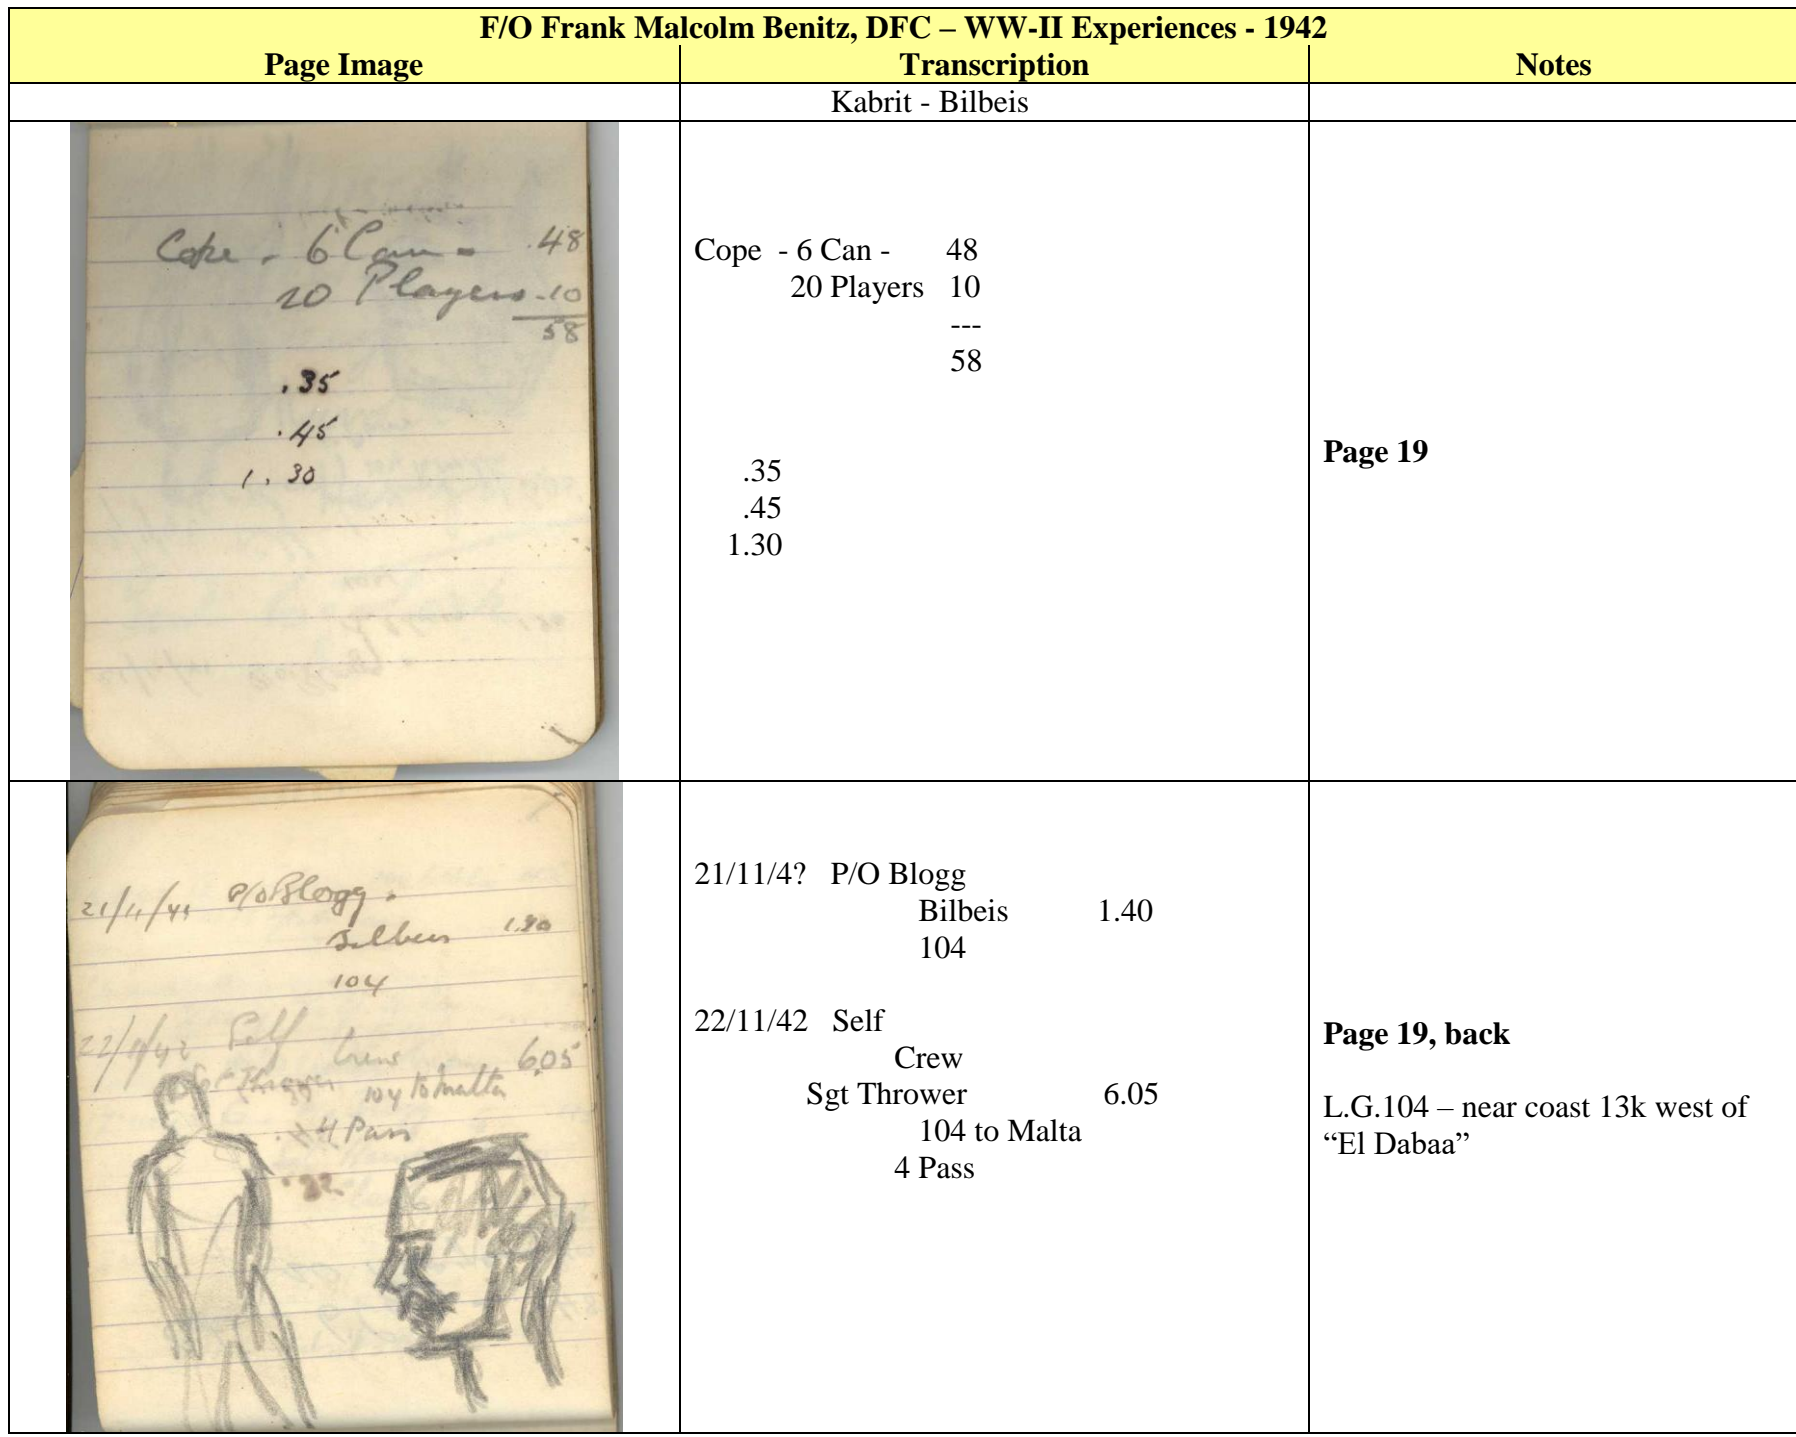 F/O Frank Malcolm Benitz, DFC – WW-II Experiences - 1942
Page Image Transcription Notes
Kabrit - Bilbeis
Cope - 6 Can - .48
20 Players .10
58
.35
.45
1.30
Cope - 6 Can - 48
20 Players 10
---
58
.35
.45
1.30
Page 19
21/11/4 P/O Blogg.
Bilbeis 1.40
104
22/11/42 Self Crew 6.05
104 to Malta
4 Pass
21/11/4? P/O Blogg
Bilbeis 1.40
104
22/11/42 Self
Crew
Sgt Thrower 6.05
104 to Malta
4 Pass
Page 19, back
L.G.104 – near coast 13k west of
“El Dabaa”